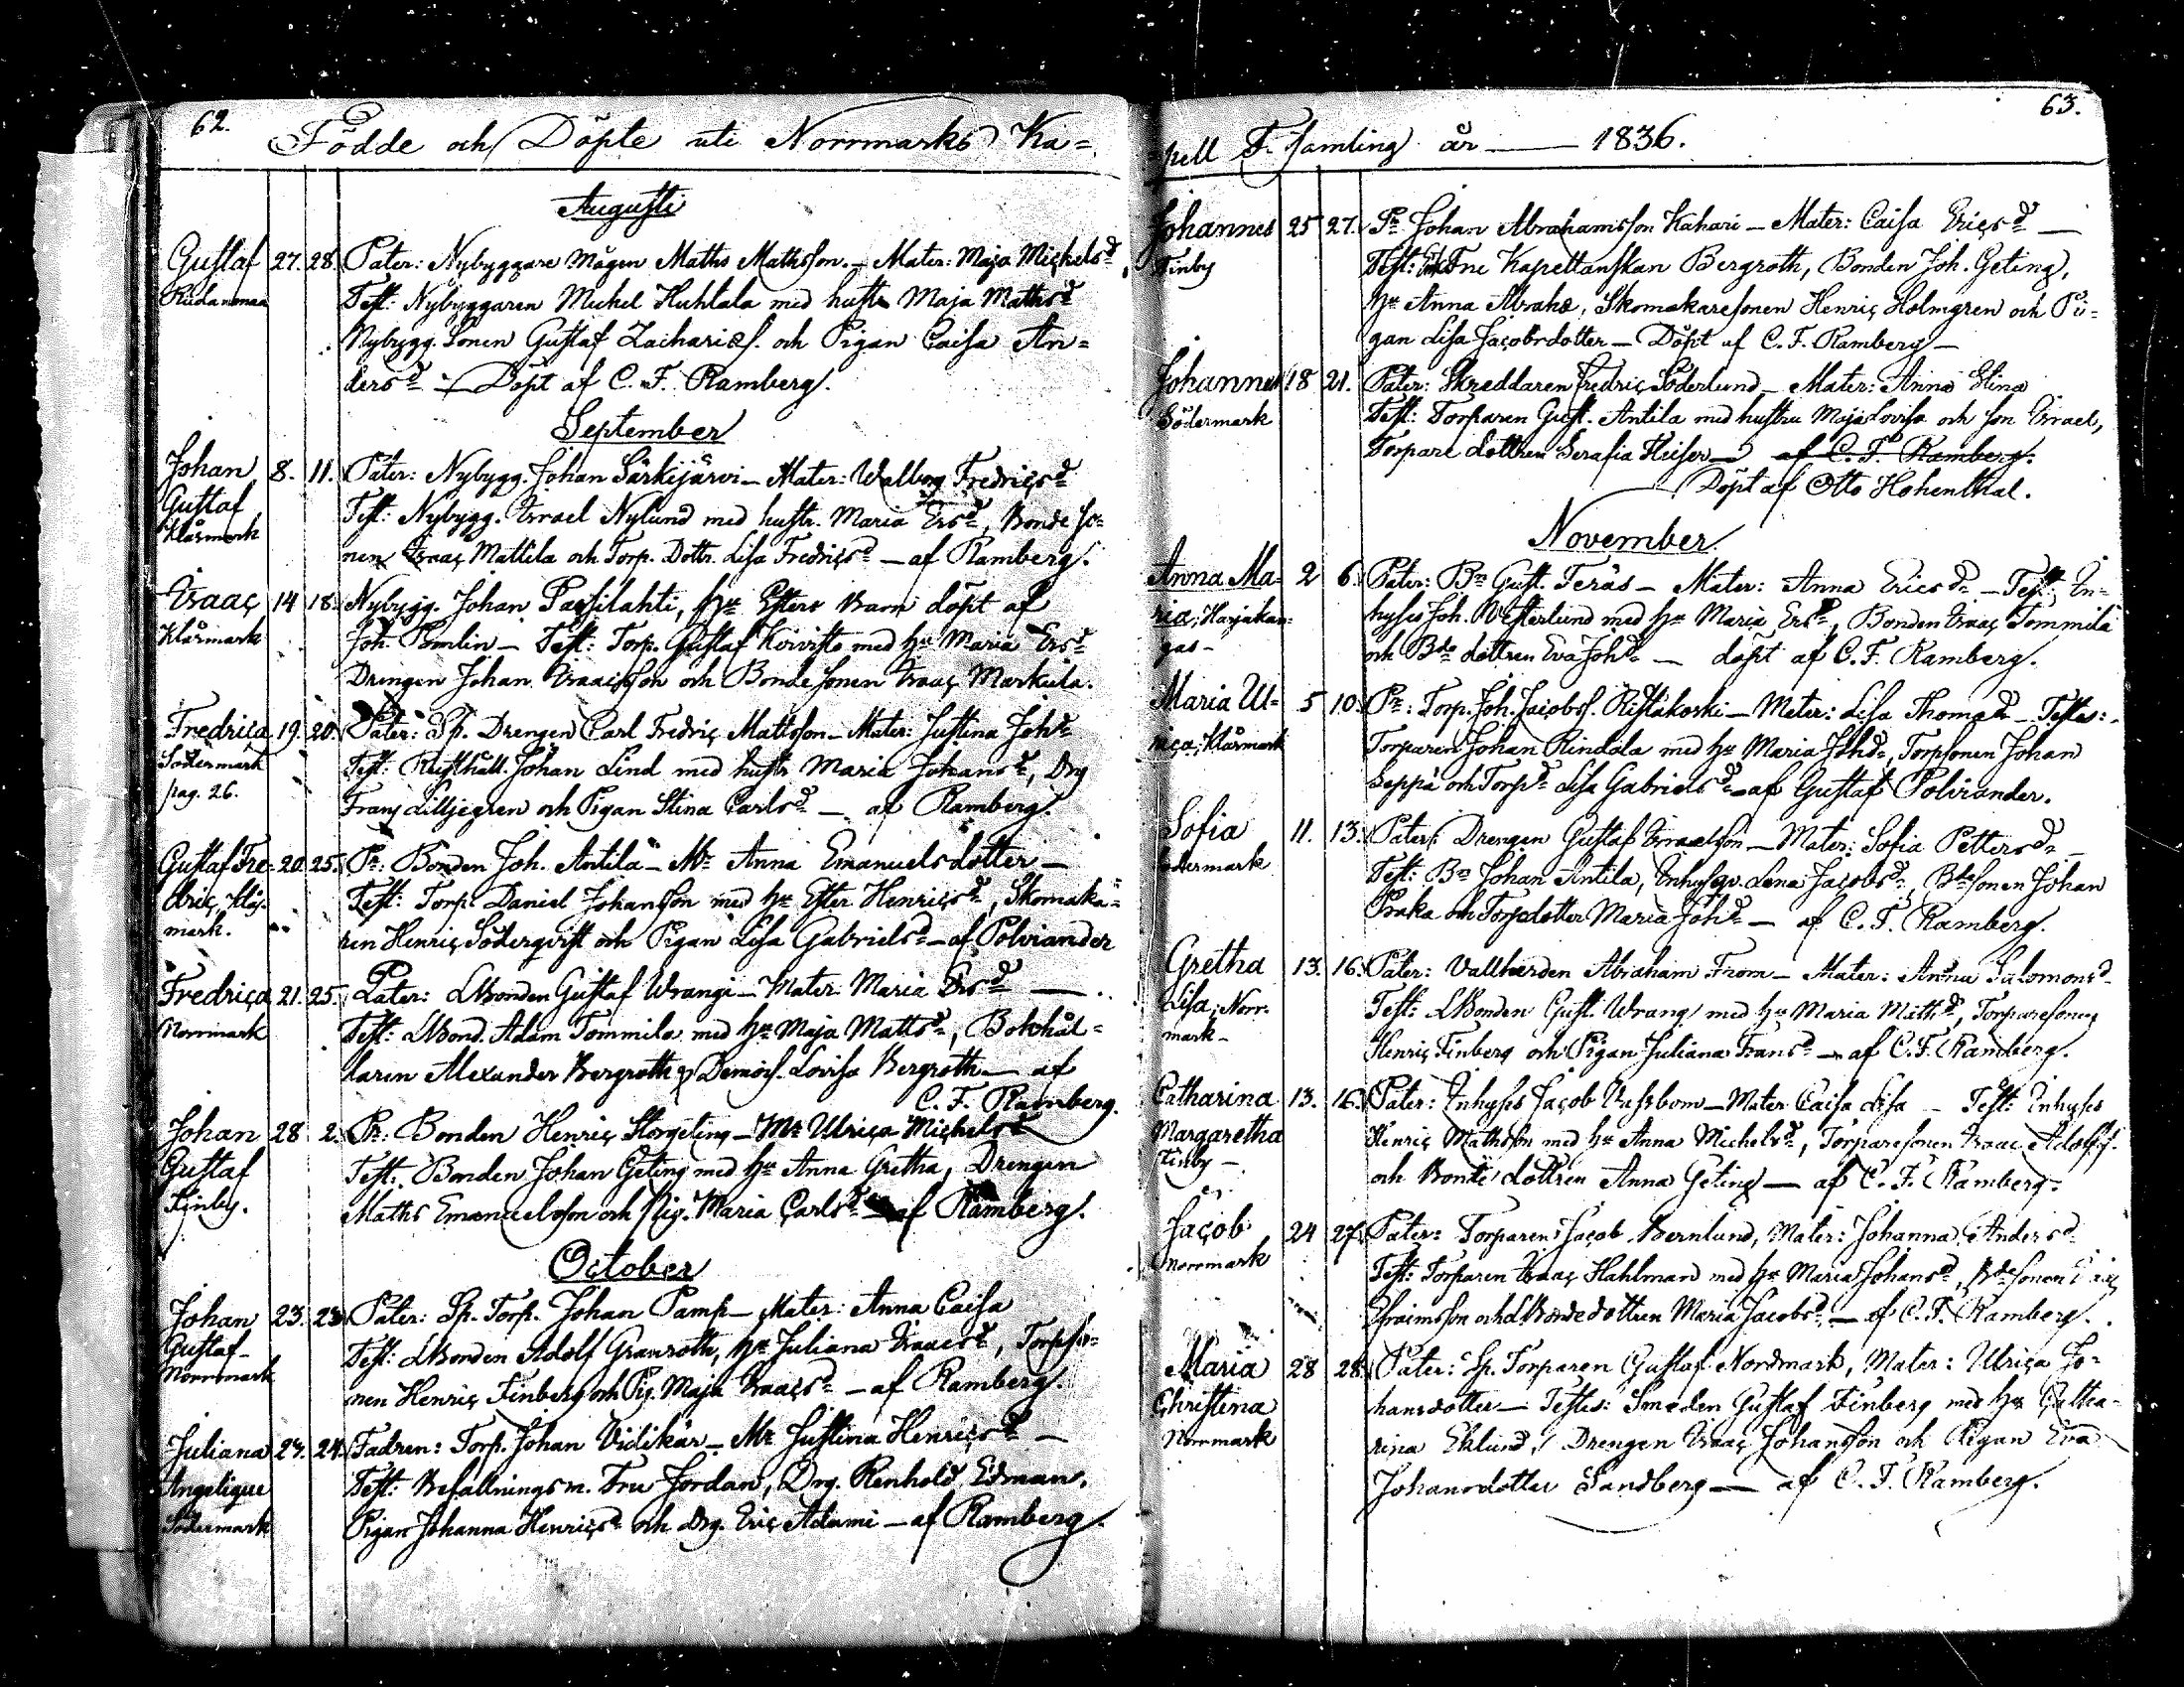 62.
Födde och Döpte uti Norrmarks Ka=
Augusti
Gustaf 27. 28. Pater: Nybyggare Mågen Maths Mathsson. — Mater: Maja Michelsd.
Test: Nybyggaren Michel Huhtala med hustr Maja Mathsd
Nybygg. Sonen Gustaf Zachariæs. och Pigan Caisa An=
dersd — Döpt af C. F. Ramberg.
September
Johan 8. 11. Pater: Nybygg. Johan Särkijärvi — Mater: Walborg Fredricsd
Gustaf
Klåsmark
Test: Nybygg. Israel Nylund med hustr. Maria Ersd, Bonde so=
nen Isaac Mattila och Torp. Dottr. Lisa Fredricsd — af Ramberg.
Isaac 14 18. Nybygg. Johan Passilahti, Hu Esters Barn döpt af
Klåsmark
Joh. Tomlin — Test: Torp. Gustaf Koivisto med Hu Maria Ersd
Drengen Johan Isaacsson och Bonde sonen Isaac Markula.
Fredrica 19. 20. Pater: Sp. Drengen Carl Fredric Mattsson — Mater: Justina Johd
Södermark
pag. 26.
Test: Rusthåll. Johan Lind med hustr Maria Johansd, Drg
Frans Lilljegren och Pigan Stina Carlsd — af Ramberg.
Gustaf Fre= 20. 25. Pr: Bonden Joh. Antila — Mr Anna Emanuelsdotter —
dric, Klås-
mark.
Test: Torp. Daniel Johansson med Hu Ester Henricsd, Skomaka=
ren Henric Söderqvist och Pigan Lisa Gabrielsd — af Polviander
Fredrica 21. 25. Pater: LBonden Gustaf Wrangi — Mater Maria Ersd —
Norrmark
Test: LBond. Adam Tommila med Hu Maja Mattsd, Bokhål=
laren Alexander Bergroth & Demois. Lovisa Bergroth — af
C. F. Ramberg.
Johan 28 2. Pr: Bonden Henric Storgeting — Mr Ulrica Michelsd
Gustaf
Finby.
Test: Bonden Johan Geting med Hu Anna Gretha, Drengen
Maths Emanuelsson och Pig. Maria Carlsd — af Ramberg.
October
Johan 23. 23. Pater: Sp. Torp. Johan Pamp — Mater: Anna Caisa
Gustaf —
Norrmark
Test: LBonden Adolf Granroth, Hu Juliana Isaacsd, Torpso=
nen Henric Finberg och Pig. Maja Isaacsd — af Ramberg.
Juliana 23. 24. Fadren: Torp. Johan Vidikär — Mr Justina Henricsd —
Angelique
Södermark
Test: Befallningsm. Fru Jordan, Drg. Renhold Edman,
Pigan Johanna Henricsd och Drg. Eric Adami — af Ramberg.
63.
=pell F.samling år — 1836.
Johannes 25 27. Pr Johan Abrahamsson Kahari — Mater: Caisa Ericsd —
Finby
Test: Fru Kapellanskan Bergroth, Bonden Joh. Geting,
Hu Anna Abrahs, Skomakaresonen Henric Holmgren och Pi=
gan Lisa Jacobsdotter — Döpt af C. F. Ramberg —
Johannes 18 21. Pater: Skreddaren Fredric Söderlund — Mater: Anna Stina
Södermark
Test: Torparen Gust. Antila med hustru Maja Lovisa och son Israel,
Torpare dottren Serafia — af C. F. Ramberg.
Döpt af Otto Hohenthal.
November
Anna Ma= 2 6. Pater: Bn Gust. Teräs — Mater: Anna Ericsd — Test: In=
ria, Harjakan=
gas —
hyses Joh. Westerlund med Hu Maria Ersd, Bonden Isaac Tommila
och Bde dottren Eva Johd — döpt af C. F. Ramberg.
Maria Ul= 5 10. Pr: Torp. Joh. Jacobss. Ristikoski — Mater: Lisa Thomasd — Testes:
rica, Klåsmark
Torparen Johan Rindala med Hu Maria Johd, Torpsonen Johan
Seppä och Torpd Lisa Gabrielsd — af Gustaf Polviander.
Sofia 11. 13. Pater: Drengen Gustaf Israelsson — Mater: Sofia Pettersd —
Södermark
Test: Bn Johan Antila, Inhysqv. Lena Jacobsd, Bdesonen Johan
Praka och Torpdotter Maria Johd — af C. F. Ramberg.
Gretha 13. 16. Pater: Vallherden Abraham From — Mater: Anna Salomonsd
Lisa, Norr-
mark —
Test: LBonden Gust. Wrang med Hu Maria Mathsd, Torparesonen
Henric Finberg och Pigan Juliana Fransd — af C. F. Ramberg.
Catharina 13. 16. Pater: Inhyses Jacob Vassbom — Mater Caisa Lisa — Test: Inhyses
Margaretha
Finby —
Henric Mathsson med Hu Anna Michelsd, Torparesonen Isaac Adolfs.
och Bonde dottren Anna Geting — af C. F. Ramberg.
Jacob 24 27. Pater: Torparen Jacob Bernlund, Mater: Johanna Andersd
Norrmark
Test: Torparen Isaac Hahlman med Hu Maria Johansd, Bdesonen Isaac
Efraimsson och LBondedottren Maria Jacobsd — af C. F. Ramberg.
Maria 28 28. Pater: Sp. Torparen Gustaf Nordmark, Mater: Ulrica Jo=
Christina
Norrmark
hansdotter — Testes: Smeden Gustaf Finberg med Hu Catha=
rina Eklund, Drengen Isaac Johansson och Pigan Eva
Johansdotter Sandberg — af C. F. Ramberg.